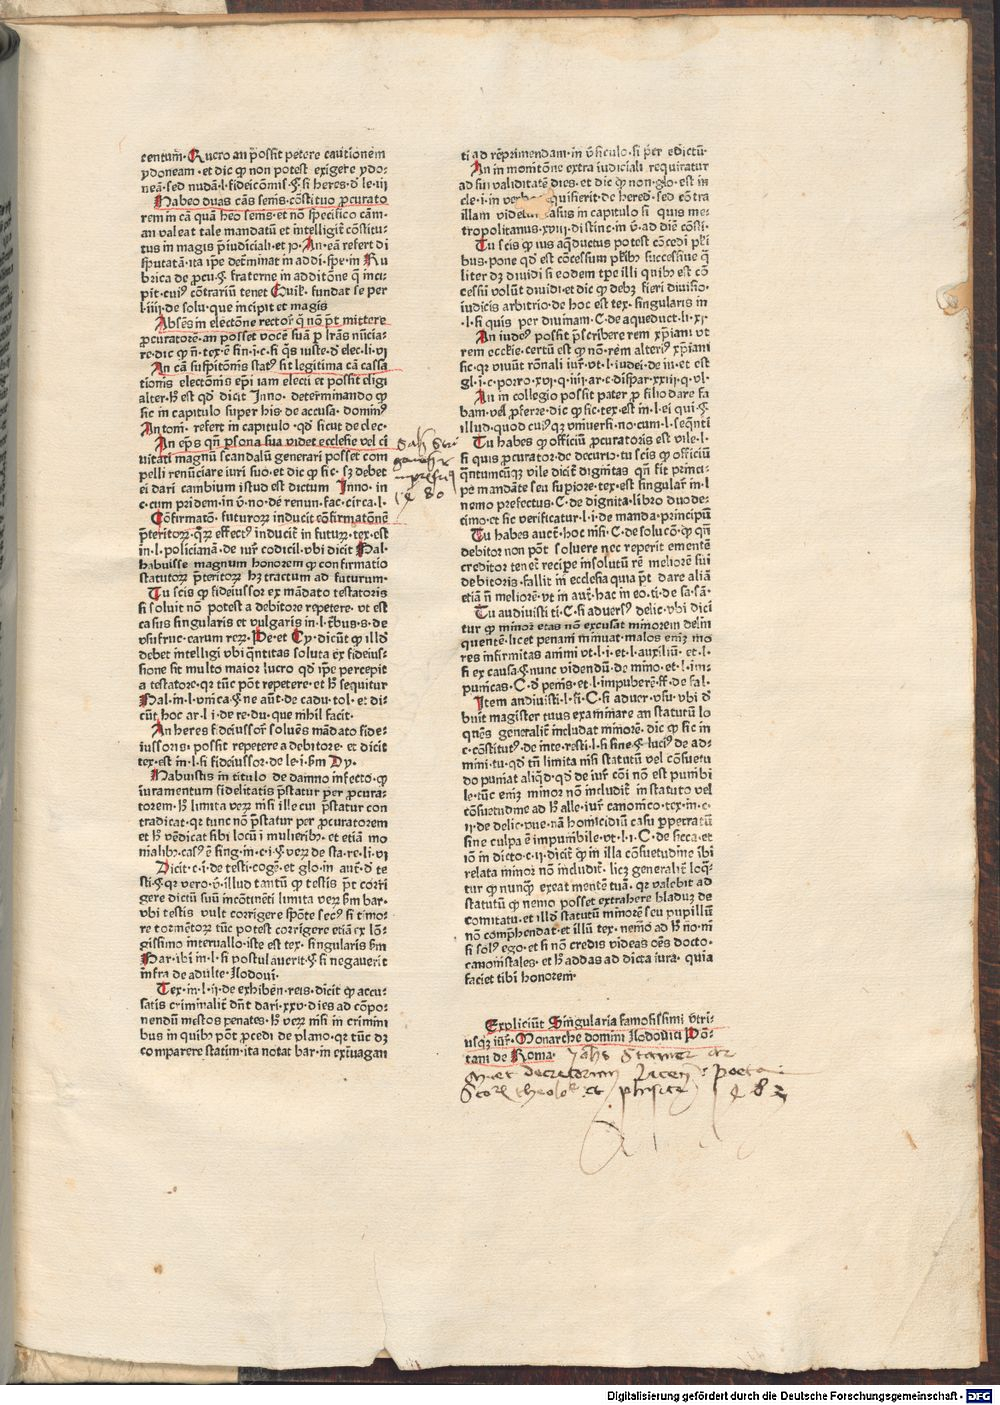 centum̃· Q̃uero an p̃ossit petere cautionem
ydoneam·et dic ꝙ non potest exigere ydo-
neā·sed nudā·l·fideicōmis·§·si heres·d̄ le·iij
Habeo duas cās semis·cōstituo ꝓcurato
rem in cā quā heo semis·et nō specifico cām·
an valeat tale mandatū et intelligit̄ cōstitu-
tus in magis p̄iudiciali·et ỿo·An·ea refert di
sputatā·ita ip̄e det̄minat in addi·spe·in Ru
brica de ꝓcu·§·fraterne in additōne q̄ inci-
pit·cuiꝰ cōtrariū tenet Guil̄·fundat se per
l·iiij·de solu·que incipit et magis
Absēs in electōne rector̄ q̄ nō p̄t mittere
ꝓcuratorē·an posset vocē suā ꝑ lrās nūcia-
re·dic ꝙ n̄·tex·ē sin·i·c·si q̄s iuste·d̄ elec·li·vi
An cā suspitōnis statꝰ sit legitima cā cassa
tionis electōnis ep̄i iam electi et possit eligi
alter·hꝰ est qd̄ dicit Inno· determinando ꝙ
sic in capitulo super his de accusa· dominꝰ
Antoni· refert in capitulo·qd̄ sicut de elec·
An ep̄s qn̄ ꝑsona sua videt̄ ecclesie vel ci
uitati magnū scandalū generari posset com
pelli renūciare iuri suo·et dic ꝙ sic· sꝫ debet
ei dari cambium istud est dictum Inno· in
c·cum pridem·in v̄·no·de renun·fac·circa·l·
Cōfirmatō· futuroꝝ inducit cōfirmatōnē
p̄teritoꝝ·q̄ꝝ effectꝰ inducit̄ in futuꝝ·tex·est
in·l·policianā·de iur̄ codicil·vbi dicit Bal·
habuisse magnum honorem ꝙ confirmatio
statutoꝝ p̄teritoꝝ hꝫ tractum ad futurum·
Tu scis ꝙ fideiussor ex mādato testatoris
si soluit nō potest a debitore repetere· vt est
casus singularis et vulgaris in·l·t̄bus·§·de
vsufruc·earum reꝝ·Pe·et Cy·dicūt ꝙ illd̄
debet intelligi vbi q̄ntitas soluta ex fideius-
sione sit multo maior lucro qd̄ ip̄e percepit
a testatore·qꝛ tūc pōt repetere·et hꝰ sequitur
Bal·in·l·vnica·§·ne aut̄·de cadu·tol·et di-
cūt hoc ar·l·i·de re·du·que nihil facit·
An heres fideiussor̄ soluēs mādato fide-
iussoris· possit repetere a debitore·et dicit
tex·est in·l·si fideiussor·de le·i·ẜm Dy·
Habuistis in titulo de damno infecto·ꝙ
iuramentum fidelitatis p̄statur per ꝓcura-
torem·hꝰ limita veꝝ nisi ille cui p̄statur con
tradicat·qꝛ tunc nō p̄statur per ꝓcuratorem
et hꝰ vēdicat sibi locū i mulieribꝰ·et etiā mo
nialibꝰ·casꝰ ē sing·in·c·i·§·veꝝ de sta·re·li·vi
Dicit·c·i·de testi·cogē·et glo·in aut̄·d̄ te
sti·§·qꝛ vero·v̄·illud tantū ꝙ testis p̄t corri
gere dictū suū incōtinēti limita veꝝ ẜm bar·
vbi testis vult corrigere spōte secꝰ si timo-
re tormētoꝝ tūc potest corrigere etiā ex lō-
gissimo interuallo·iste est tex· singularis ẜm
Bar·ibi in·l·si postulauerit·§·si negauerit
infra de adulte·Lodoui·
Tex·in·l·ij·de exhiben·reis·dicit ꝙ accu-
satis criminalit̄ dn̄t dari·xxv·dies ad cōpo-
nendū mestos penates·hꝰ veꝝ nisi in crimini
bus in quibꝰ pōt ꝓcedi de plano·qꝛ tūc dꝫ
comparere statim·ita notat bar·in ext̄uagan
ti ad rep̄rimendam·in v̄siculo·si per edictū·
An in monitōne extra iudiciali requiratur
ad sui validitatē dies·et dic ꝙ non·glo·est in
cle·i·in verbo quisierit·de hered·sed cōtra
illam videtur casus in capitulo si quis me-
tropolitanus·xviij·distinc·in v̄·ad diē cōsti·
Tu scis ꝙ ius aq̄ductus potest cōcedi pl̄i
bus·pone qd̄ est cōcessum pl̄ibꝰ successiue q̄
liter dꝫ diuidi si eodem tꝑe illi quibꝰ est cō
cessū volūt diuidi·et dic ꝙ debꝫ fieri diuisio·
iudicis arbitrio·de hoc est tex· singularis in
·l·si quis per diuinam·C·de aqueduct·li·xi·
An iudeꝰ possit p̄scribere rem xp̄iani vt
rem ecclesie·certū est ꝙ nō·rēm alteriꝰ xp̄iani
sic·qꝛ viuūt rōnali iur̄·vt·l·iudei·de in·et est
gl·i·c·porro·xvi·q·iiij·ar·c·dispar·xxiij·q·vl·
An in collegio possit pater ꝓ filio dare fa
bam·vel ꝓferre·dic ꝙ sic·tex·est in·l·ei qui·§·
illud·quod cuiꝰꝗ vniuersi·no·cum·l·seq̄nti
Tu habes ꝙ officiū ꝓcuratoris est vile·l·
si quis ꝓcurator·de decurio·tu scis ꝙ officiū
q̄ntumcūꝗ vile dicit̄ dignitas qn̄ fit princi-
pe mandāte seu supiore·tex·est singular̄ in·l
nemo prefectus·C·de dignita·libro duode-
cimo·et sic verificatur·l·i·de manda·principū
Tu habes auct̄·hoc nisi·C·de solucō·ꝙ qn̄
debitor non pōt soluere nec reperit ementē
creditor tenet̄ recipe insolutū rē meliorē sui
debitoris·fallit in ecclesia quia p̄t dare aliā
etiā n̄ meliorē·vt in aut̄·hac in eo·ti·de sa·sā·
Tu audiuisti ti·C·si aduersꝰ delic·vbi dici
tur ꝙ minor etas nō excusat minorem delin
quentē·licet penam minuat·malos enīꝫ mo
res infirmitas animi vt·l·i·et·l·auxiliū· et·l·
si ex causa·§·nunc videndū·de mino·et·l·im-
punicas·C·d̄ penis·et·l·impuberē·ff·de fal·
Item audiuisti·l·si·C·si aduer·vsu·vbi d̄
buit magister tuus examinare an statutū lo
quēs generalit̄ includat minorē·dic ꝙ sic in
c·cōstitutꝰ·de inte·resti·l·si sine·§·luciꝰ de ad-
mini·tu·qd̄ tn̄ limita nisi statutū vel cōsuetu
do puniat aliqd̄·qd̄ de iur̄ cōi nō est punibi
le·tūc enīꝫ minor nō includit̄ in statuto vel
cōsuetudine ad hꝰ alle·iur̄ canonico·tex·in·c·
ij·de delic·pue·nā homicidiū casu ꝑpetratū
sine culpa ē impunibile·vt·l·i·C·de sicca·et
iō in dicto·c·ij·dicit̄ ꝙ in illa cōsuetudine ibi
relata minor nō includit̄·licꝫ generalit̄ loq̄-
tur ꝙ nunꝗ exeat mentē tuā· qꝛ valebit ad
statutū ꝙ nemo posset extrahere bladuꝫ de
comitatu·et illd̄ statutū minorē seu pupillū
nō comp̄hendat·et illū tex· nemō ad hꝰ nō·ni
si solꝰ ego·et si nō credis videas oēs docto·
canonistales·et hꝰ addas ad dicta iura· quia
faciet tibi honorem·
Expliciūt Singularia famosissimi vtri-
usꝗ iur̄·Monarche domini Lodouici Pō-
tani de Roma·
1480
1483
Digitalisierung gefördert durch die Deutsche Forschungsgemeinschaft - DFG